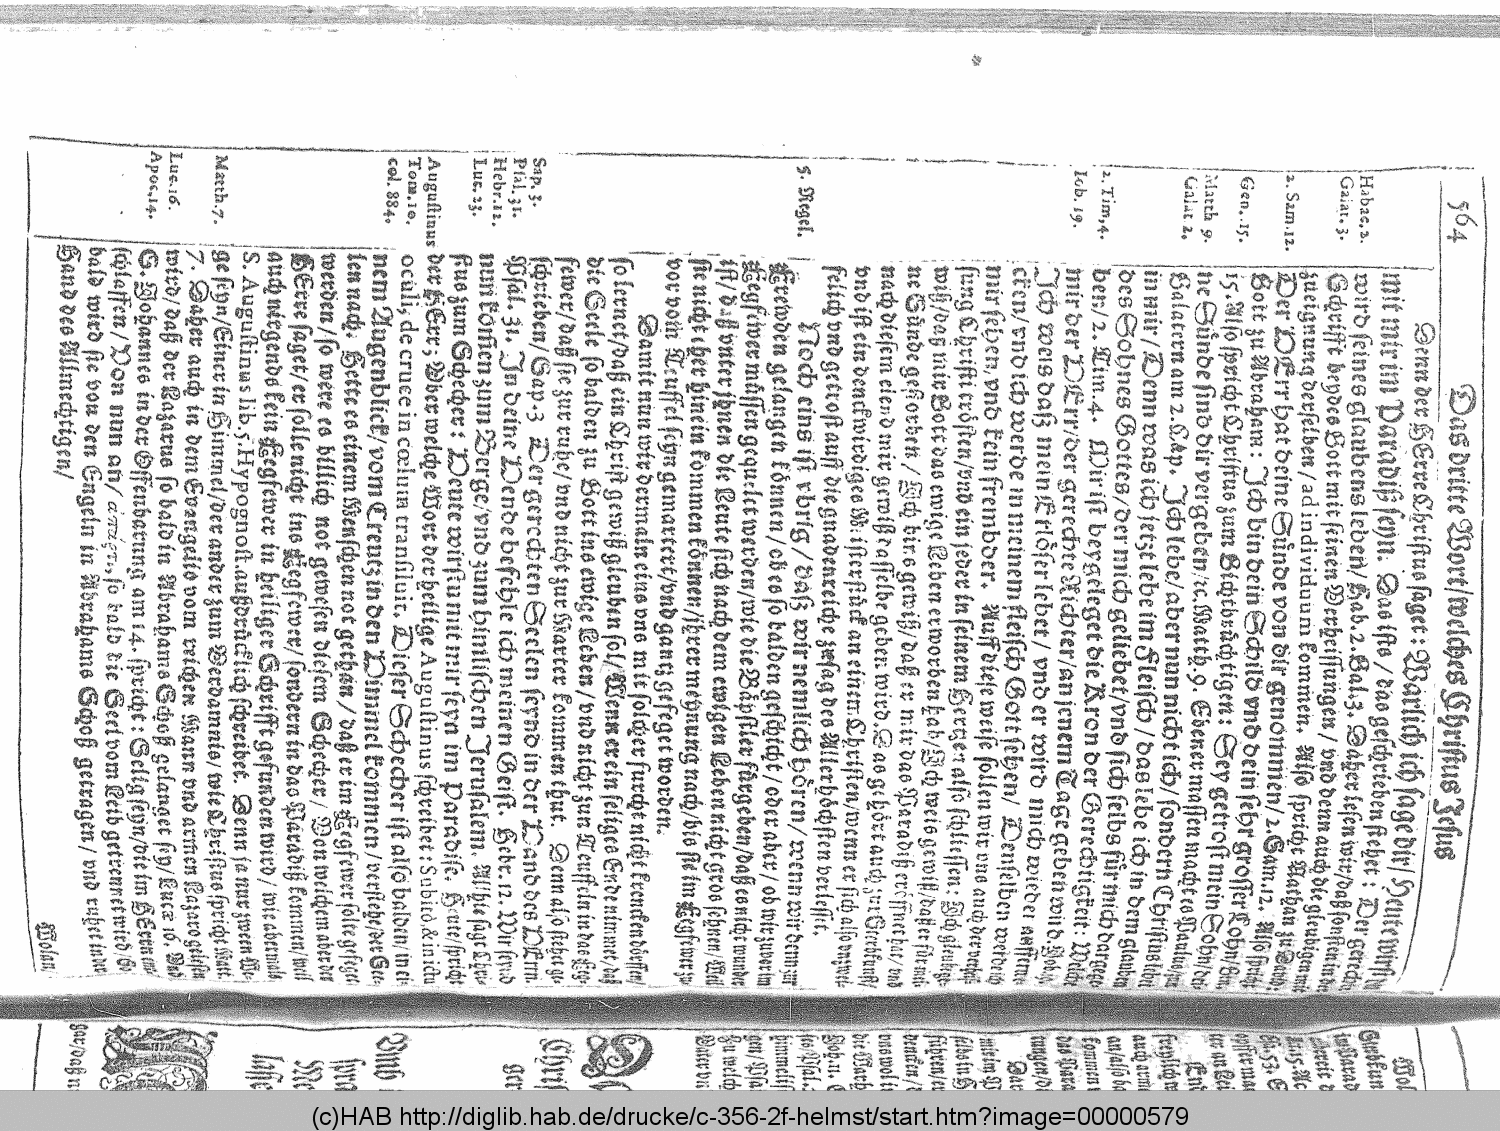 564
Das dritte Wort/welches Christus Jesus
Denn der HErre Christus saget: Warlich ich sage dir/ Heute wirstu
mit mir im Paradiß seyn. Das ists/ das geschrieben stehet: Der gerecht
wird seines glaubens leben/ Hab. 2. Gal. 3. Daher lesen wir/ daß sonst in der
Schrifft beydes Gott mit seinen Verheissungen/ vnd denn auch die gleubigen mit
zueignung derselben/ ad individuum kommen. Also spricht Nathan zu David:
Der HErr hat deine Sünde von dir genommen/ 2. Sam. 12. Also spricht
Gott zu Abraham: Ich bin dein Schild vnd dein sehr grosser Lohn/ Gen.
15. Also spricht Christus zum Gichtbrüchtigen: Sey getrost mein Sohn/ dei-
ne Sünde sind dir vergeben/ ꝛc. Matth. 9. Ebener massen macht es Paulus zun
Galatern am 2. Cap. Ich lebe/ aber nun nicht ich/ sondern Christus lebt
in mir/ Denn was ich jetzt lebe im Fleisch/ das lebe ich in dem glauben
des Sohnes Gottes/ der mich geliebet/ vnd sich selbs für mich dargege-
ben/ 2. Tim. 4. Mir ist beygeleget die Kron der Gerechtigkeit/ Welche
mir der HErr/ der gerechte Richter/ an jenem Tage geben wird/ Job.
Ich weis daß mein Erlöser lebet/ vnd er wird mich wieder aufferwe-
cken/ vnd ich werde in meinem fleisch Gott sehen/ Denselben werde ich
mir sehen/ vnd kein frembder. Auff diese weise sollen wir vns auch der verheis-
sung Christi trösten/ vnd ein jeder in seinem Hertzen also schliessen: Ich gleube ge-
wiß/ daß mir Gott das ewige Leben erworben hab/ Ich weis gewiß/ daß er für mei-
ne Sünde gestorben/ Ich bin gewiß/ daß er mir das Paradiß eröffnet hat/ vnd
nach diesem elend mir gewiß dasselbe geben wird. Das gehört auch zur Seeligkeit/
vnd ist ein denckwirdiges Meisterstück an einem Christen/ wenn er sich also gewiß-
lich vnd getrost auff die gnadenreiche zusag des Allerhöchsten verlesst.
Noch eins ist vbrig/ daß wir nemlich hören/ wenn wir denn zur
Frewden gelangen können/ ob es so balden geschicht/ oder aber/ ob wir zuvor im
Fegfewer müssen gequelet werden/ wie die Päpstler fürgeben/ daß es nicht wunder
ist/ daß vnter jhnen die Leute sich nach dem ewigen Leben nicht gros sehnen/ Weil
sie nicht eher hinein kommen können/ jhrer meynung nach/ bis sie im Fegfewer zu-
vor vom Teuffel seyn gemartert/ vnd gantz gefeget worden.
Damit nun wir dermaln eins vns mit solcher furcht nicht krencken dürffen/
so lernet/ daß ein Christ gewiß gleuben sol/ Wenn er ein seliges Ende nimmet/ daß
die Seele so balden zu Gott ins ewige Leben/ vnd nicht zun Teuffeln in das Feg-
fewer/ daß sie zur ruhe/ vnd nicht zur Marter kommen thut. Denn also stehet ge-
schrieben/ Sap. 3. Der gerechten Seelen seind in der Hand des HErrn.
Psal. 31. In deine Hende befehle ich meinen Geist. Hebr. 12. Wir seind
nun kommen zum Berge/ vnd zum himlischen Jerusalem. Also sagt Chri-
stus zum Schecher: Heute wirstu mit mir seyn im Paradiß. Heute/ spricht
der HErr; Vber welche Wort der heilige Augustinus schreibet: Subitò & in ictu
oculi, de cruce in cœlum transiluit. Dieser Schecher ist also balden/ in ei-
nem Augenblick/ vom Creutz in den Himmel kommen/ verstehe/ der See-
len nach. Hette es einem Menschen not gethan/ daß er im Fegfewer solte gefeget
werden/ so were es billich not gewesen diesem Schecher/ Von welchem aber der
HErre saget/ er solle nicht ins Fegfewer/ sondern in das Paradiß kommen/ weil
auch nirgends kein Fegfewer in heiliger Schrifft gefunden wird/ wie abermals
S. Augustinus lib. 5. Hypognost. außdrücklich schreibet. Denn ja nur zween We-
ge seyn/ Einer in Himmel/ der ander zum Verdamnis/ wie Christus spricht/ Matt.
7. Daher auch in dem Evangelio vom reichen Mann vnd armen Lazaro gelesen
wird/ daß der Lazarus so bald in Abrahams Schoß gelanget sey/ Lucæ 16. Vnd
S. Johannes in der Offenbarung am 14. spricht: Selig seyn/ die im HErrn ent-
schlaffen/ Von nun an/ so bald die Seel vom Leib getrennet wird/ So
bald wird sie von den Engeln in Abrahams Schoß getragen/ vnd ruhet in der
Hand des Allmechtigen/
Wolan
Habac. 2.
Galat. 3.
2. Sam. 12.
Gen. 15.
Matth 9.
Galat 2.
2. Tim. 4.
Iob. 19.
5. Regel.
Sap. 3.
Psal. 31.
Hebr. 12.
Luc. 23.
Augustinus
Tom. 10.
col. 884.
Matth. 7.
Luc. 16.
Apoc. 14.
(c)HAB http://diglib.hab.de/drucke/c-356-2f-helmst/start.htm?image=00000579